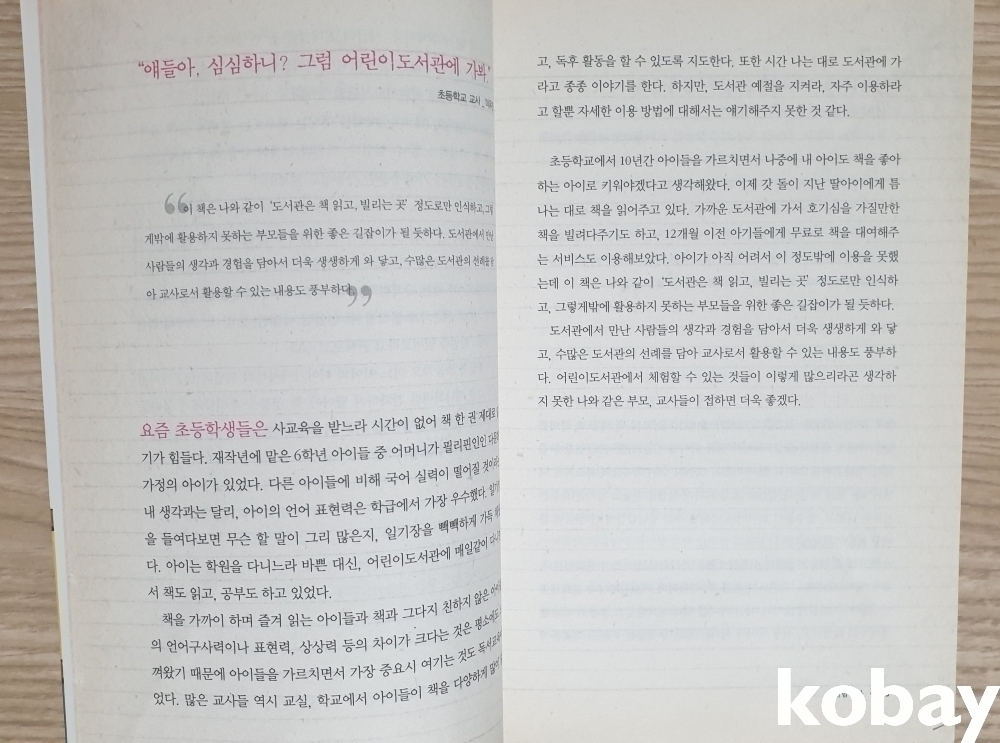 “얘들아, 심심하니? 그럼 어린이도서관에 가봐.”
초등학교 교사
이 책은 나와 같이 ‘도서관은 책 읽고, 빌리는 곳’ 정도로만 인식하고, 그렇
게밖에 활용하지 못하는 부모들을 위한 좋은 길잡이가 될 듯하다. 도서관에서 만난
사람들의 생각과 경험을 담아서 더욱 생생하게 와 닿고, 수많은 도서관의 선례를 담
아 교사로서 활용할 수 있는 내용도 풍부하다.
요즘 초등학생들은 사교육을 받느라 시간이 없어 책 한 권 제대로
기가 힘들다. 재작년에 맡은 6학년 아이들 중 어머니가 필리핀인인 다문화
가정의 아이가 있었다. 다른 아이들에 비해 국어 실력이 떨어질 것이라는
내 생각과는 달리, 아이의 언어 표현력은 학급에서 가장 우수했다. 일기
을 들여다보면 무슨 할 말이 그리 많은지, 일기장을 빽빽하게 가득
다. 아이는 학원을 다니느라 바쁜 대신, 어린이도서관에 매일같이 다니
서 책도 읽고, 공부도 하고 있었다.
책을 가까이 하며 즐겨 읽는 아이들과 책과 그다지 친하지 않은
의 언어구사력이나 표현력, 상상력 등의 차이가 크다는 것은 평소에도
껴왔기 때문에 아이들을 가르치면서 가장 중요시 여기는 것도 독서교육
었다. 많은 교사들 역시 교실, 학교에서 아이들이 책을 다양하게 많이
고, 독후 활동을 할 수 있도록 지도한다. 또한 시간 나는 대로 도서관에 가
라고 종종 이야기를 한다. 하지만, 도서관 예절을 지켜라, 자주 이용하라
고 할뿐 자세한 이용 방법에 대해서는 얘기해주지 못한 것 같다.
초등학교에서 10년간 아이들을 가르치면서 나중에 내 아이도 책을 좋아
하는 아이로 키워야겠다고 생각해왔다. 이제 갓 돌이 지난 딸아이에게 틈
나는 대로 책을 읽어주고 있다. 가까운 도서관에 가서 호기심을 가질만한
책을 빌려다주기도 하고, 12개월 이전 아기들에게 무료로 책을 대여해주
는 서비스도 이용해보았다. 아이가 아직 어려서 이 정도밖에 이용을 못했
는데 이 책은 나와 같이 ‘도서관은 책 읽고, 빌리는 곳’ 정도로만 인식하
고, 그렇게밖에 활용하지 못하는 부모들을 위한 좋은 길잡이가 될 듯하다.
도서관에서 만난 사람들의 생각과 경험을 담아서 더욱 생생하게 와 닿
고, 수많은 도서관의 선례를 담아 교사로서 활용할 수 있는 내용도 풍부하
다. 어린이도서관에서 체험할 수 있는 것들이 이렇게 많으리라곤 생각하
지 못한 나와 같은 부모, 교사들이 접하면 더욱 좋겠다.
kobay